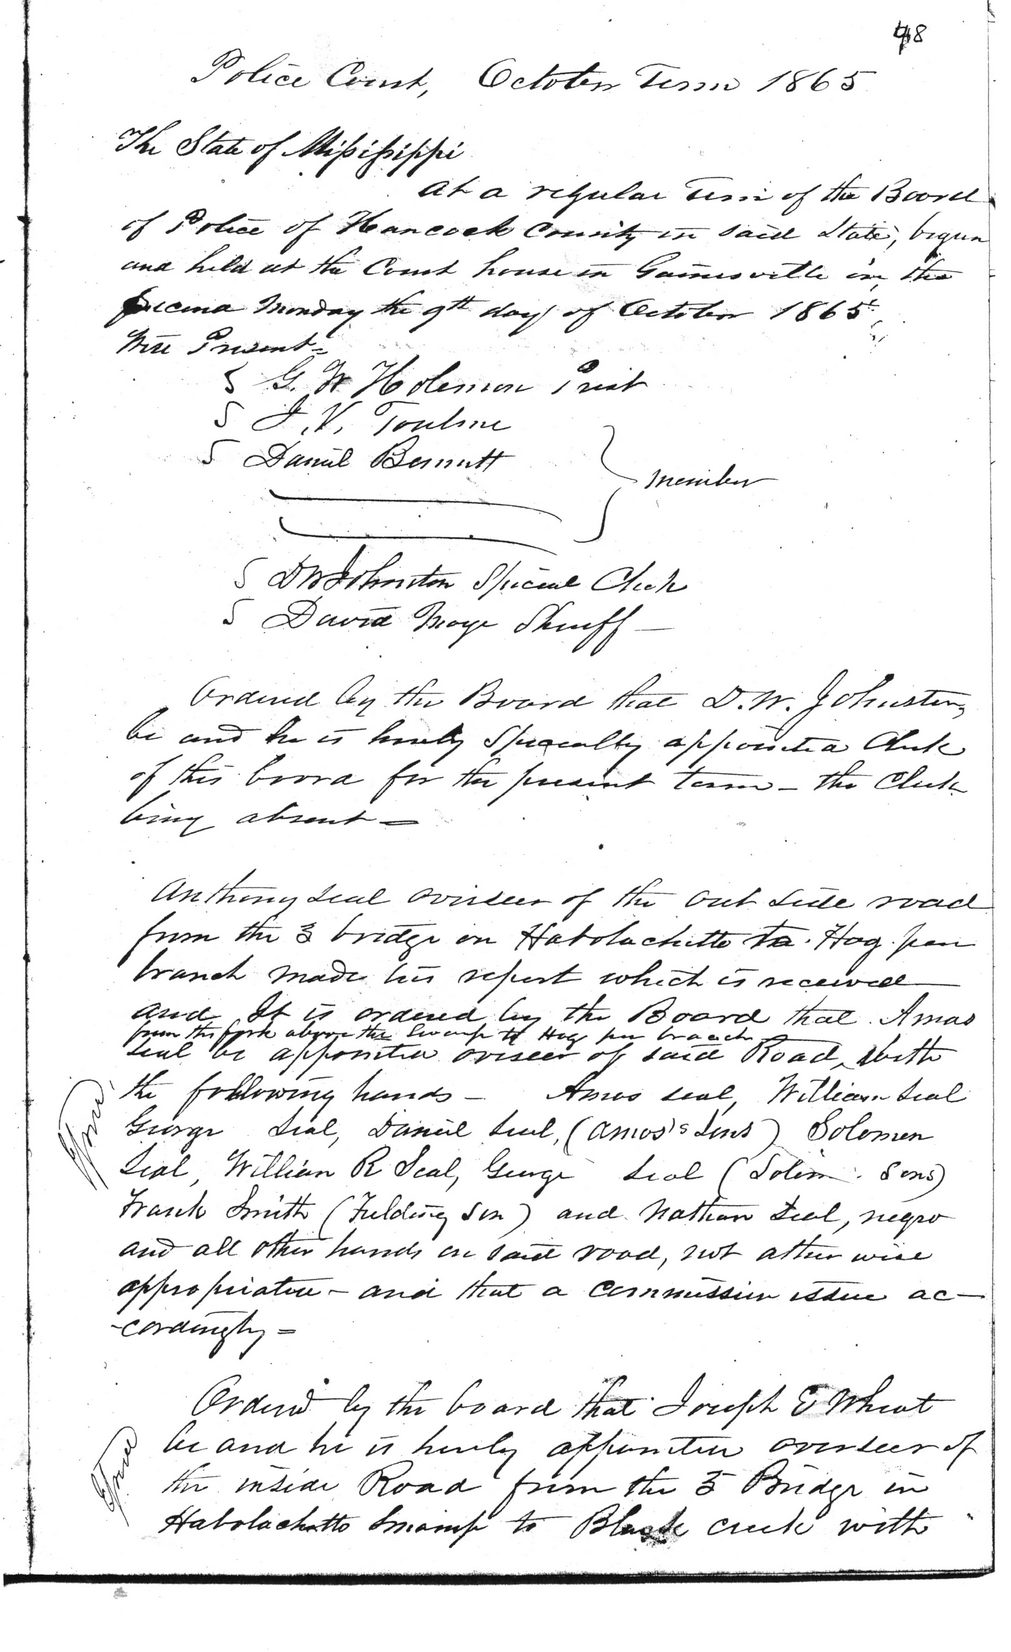 48
Police Court, October Term 1865
The State of Mississippi
At a regular Term of the Board
of Police of Hancock County in said State, begun
and held at the Court house in Gainesville on the
second Monday the 9th day of October 1865
Were Present=
G. W Holemon Prest
J. V. Toulme
Daniel Bennett
member
D W Johnston Special Clerk
David Moye Sheriff —
Ordered by the Board that D. W. Johnston
be and he is hereby Specially appointed Clerk
of this board for the present term – the Clerk
being absent =
Anthony Seal overseer of the out side road
from the 3 bridge on Habolachitto to Hog pen
branch made his report which is received
and It is ordered by the Board that Amos
from the fork above the Swamp to Hog pen branch
Seal be appointed overseer of said Road, with
the following hands – Amos Seal, William Seal
George Seal, Daniel Seal, (Amos's Sons) Solomon
Seal, William R Seal, George Seal (Solim. Sons)
Frank Smith (Fielding Son) and Nathan Seal, negro
and all other hands on said road, not other wise
appropriated – and that a commission issue ac–
-cordingly =
Ordered by the board that Joseph E Wheat
be and he is hereby appointed overseer of
the inside Road from the 3 Bridge in
Habolachitto Swamp to Black creek with